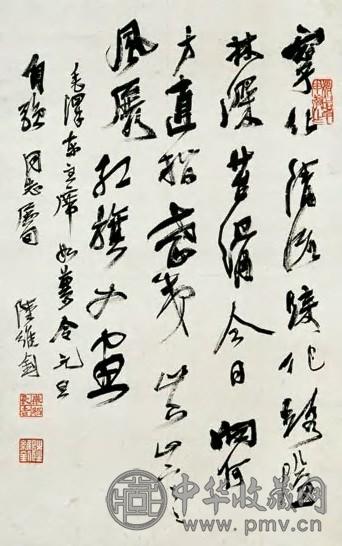 寧化清流歸化路隘
林深苔滑今日向何
方直指武夷山下
風展紅旗如画
毛澤东主席如夢令元旦
自強同志屬
陸維釗
中华收藏网
www.pmv.cn